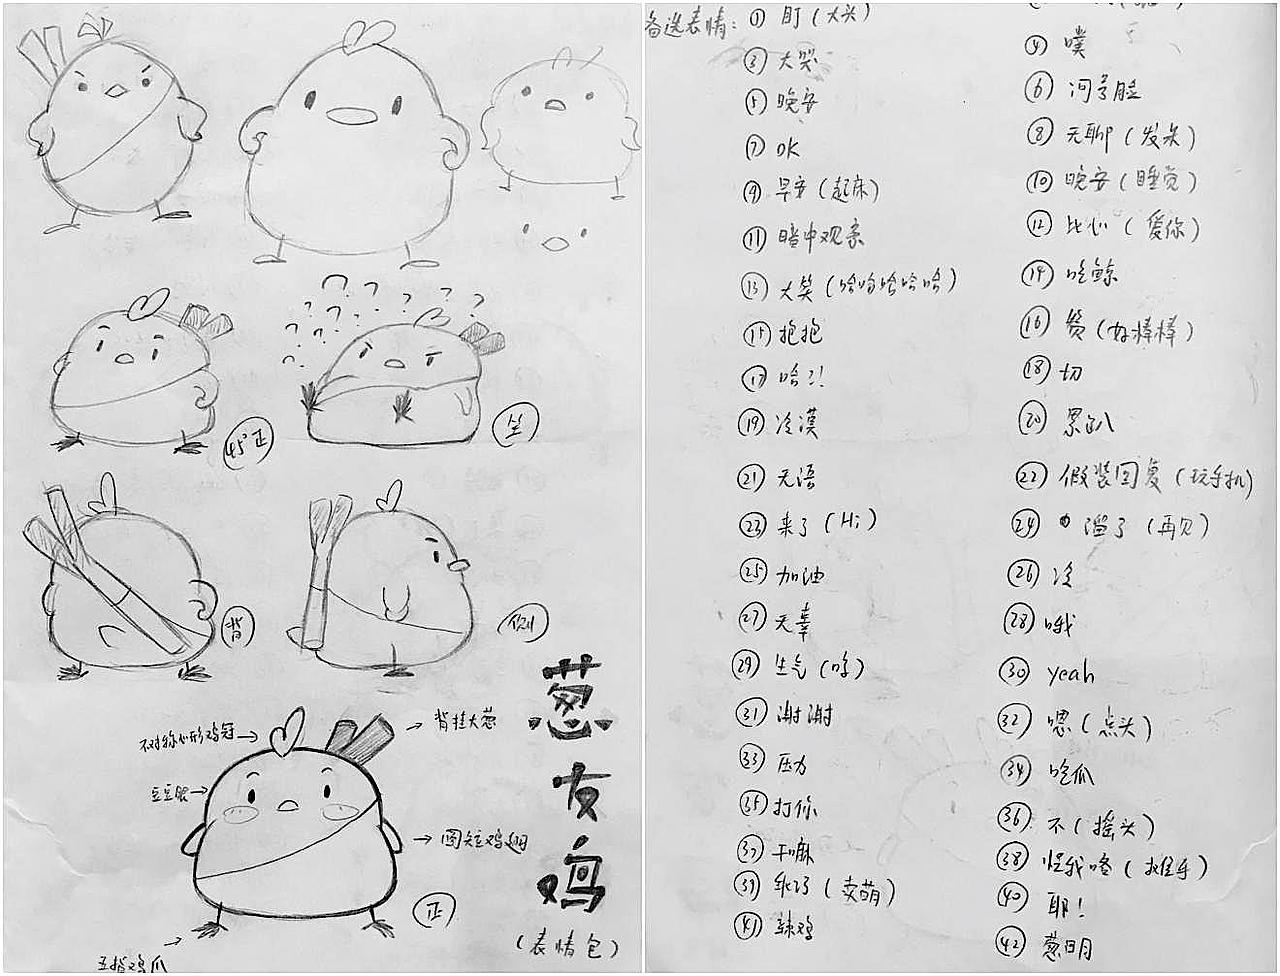 45°正
坐
背
侧
葱
友
鸡
(表情包)
不对称心形鸡冠
背挂大葱
豆豆眼
圆短鸡翅
正
五指鸡爪
备选表情:
① 盯(大头)
③ 大哭
④ 噗
⑤ 晚安
⑥ 问号脸
⑦ OK
⑧ 无聊(发呆)
⑨ 早安(起床)
⑩ 晚安(睡觉)
⑪ 暗中观察
⑫ 比心(爱你)
⑬ 大笑(哈哈哈哈哈)
⑭ 吃鲸
⑮ 抱抱
⑯ 赞(好棒棒)
⑰ 哈?!
⑱ 切
⑲ 冷漠
⑳ 累趴
㉑ 无语
㉒ 假装回复(玩手机)
㉓ 来了(Hi)
㉔ 溜了(再见)
㉕ 加油
㉖ 冷
㉗ 无辜
㉘ 哦
㉙ 生气(哼)
㉚ yeah
㉛ 谢谢
㉜ 嗯(点头)
㉝ 压力
㉞ 吃瓜
㉟ 打你
㊱ 不(摇头)
㊲ 干嘛
㊳ 怪我咯(摊手)
㊴ 乖巧(卖萌)
㊵ 耶!
㊶ 辣鸡
㊷ 葱明